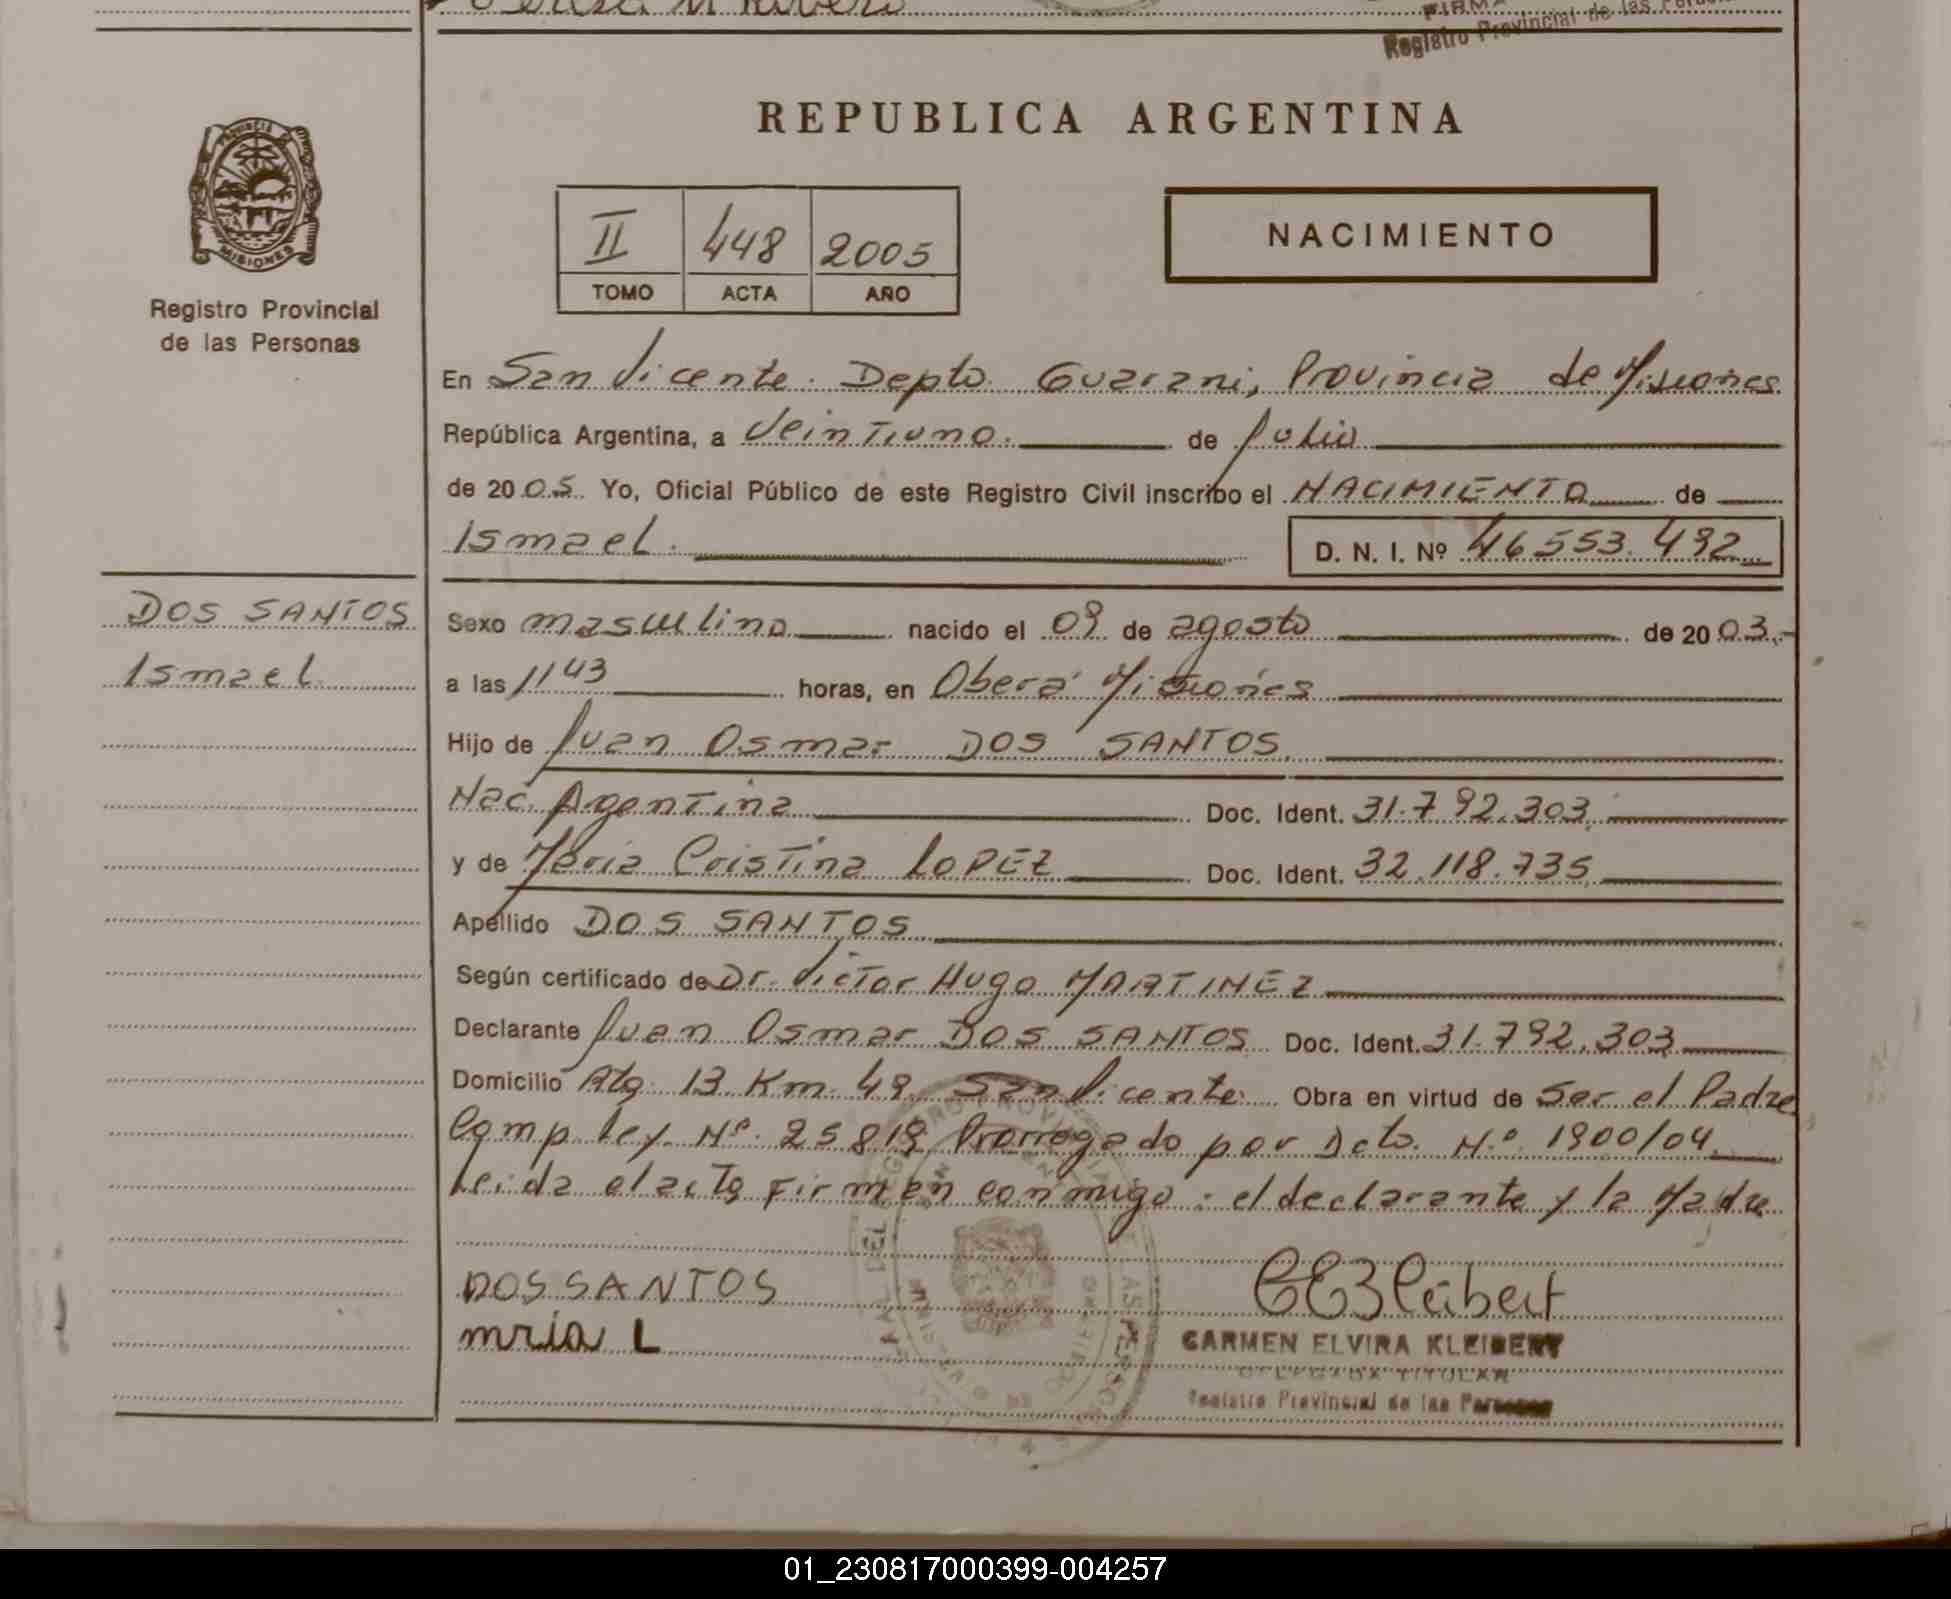 FIRMA
Registro Provincial de las
REPUBLICA ARGENTINA
PROVINCIA DE
MISIONES
Registro Provincial
de las Personas
II 448 2005
TOMO ACTA AÑO
NACIMIENTO
En San Vicente. Depto. Guarani, Provincia de Misiones
República Argentina, a Veintiuno. de Julio
de 2005. Yo, Oficial Público de este Registro Civil inscribo el NACIMIENTO de
Ismael. D. N. I. Nº 46553.492
DOS SANTOS
Ismael.
Sexo masculino nacido el 09 de agosto de 2003.-
a las 11 43 horas, en Oberá Misiones
Hijo de Juan Osmar DOS SANTOS.
Nac. Argentina Doc. Ident. 31.792.303.
y de Maria Cristina LOPEZ Doc. Ident. 32.118.735
Apellido DOS SANTOS
Según certificado de Dr. Victor Hugo MARTINEZ
Declarante Juan Osmar DOS SANTOS Doc. Ident. 31.792.303
Domicilio Km. 49. San Vicente. Obra en virtud de Ser el Padre
Comp. Ley. Nº. 25819 Prorrogado por Dcto. N.º 1900/04.
Leida el acta firman conmigo: el declarante y la Madre
DOS SANTOS
mria L
CARMEN ELVIRA KLEIBERT
DELEGADA TITULAR
Registro Provincial de las Personas
01_230817000399-004257